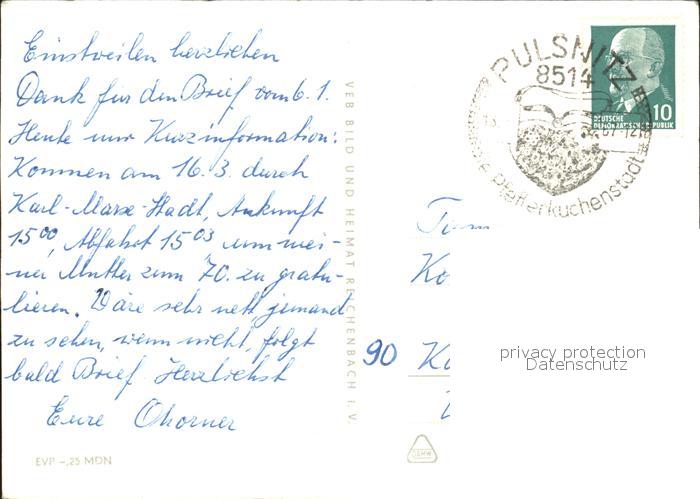 Einstweilen herzlichen
Dank für den Brief vom 6. 1.
Heute nur Kurzinformation:
Kommen am 16. 3. durch
Karl-Marx-Stadt, Ankunft
15 00, Abfahrt 15 03 um mei-
ner Mutter zum 70. zu gratu-
lieren. Wäre sehr nett, jemand
zu sehen, wenn nicht, folgt
bald Brief. Herzlichst
Eure Ohorner
EVP -,25 MDN
VEB BILD UND HEIMAT REICHENBACH I. V.
PULSNITZ
8514
die Pfefferkuchenstadt
10
DEUTSCHE
DEMOKRATISCHE REPUBLIK
Fam
90 K
privacy protection
Datenschutz